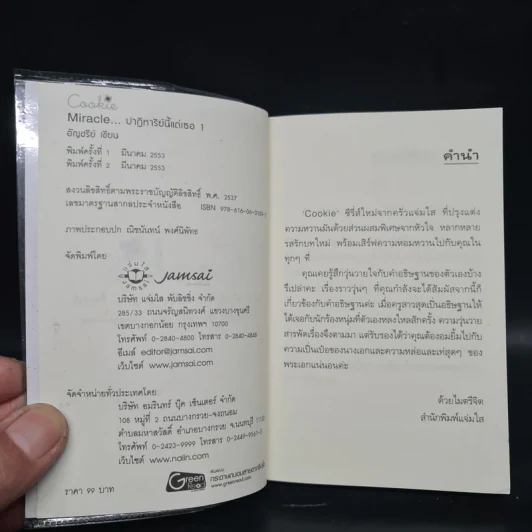 Cookie
Miracle... ปาฏิหาริย์นี้แด่เธอ 1
อัญชรีย์ เขียน
พิมพ์ครั้งที่ 1 มีนาคม 2553
พิมพ์ครั้งที่ 2 มีนาคม 2553
สงวนลิขสิทธิ์ตามพระราชบัญญัติลิขสิทธิ์ พ.ศ. 2537
เลขมาตรฐานสากลประจำหนังสือ ISBN 978-616-06-
ภาพประกอบปก ณิชนันทน์ พงศ์นิพัทธ
จัดพิมพ์โดย
แจ่มใส
jamsai
บริษัท แจ่มใส พับลิชชิ่ง จำกัด
285/33 ถนนจรัญสนิทวงศ์ แขวงบางขุนศรี
เขตบางกอกน้อย กรุงเทพฯ 10700
โทรศัพท์ 0-2840-4800 โทรสาร 0-2840-
อีเมล์ editor@jamsai.com
เว็บไซต์ www.jamsai.com
จัดจำหน่ายทั่วประเทศโดย
บริษัท อมรินทร์ บุ๊ค เซ็นเตอร์ จำกัด
108 หมู่ที่ 2 ถนนบางกรวย-จงถนอม
ตำบลมหาสวัสดิ์ อำเภอบางกรวย จ.นนทบุรี
โทรศัพท์ 0-2423-9999 โทรสาร 0-2449-
เว็บไซต์ www.naiin.com
Green
ราคา 99 บาท
คำนำ
'Cookie' ซีรี่ส์ใหม่จากครัวแจ่มใส ที่ปรุงแต่ง
ความหวานมันด้วยส่วนผสมพิเศษจากหัวใจ หลากหลาย
รสรักบทใหม่ พร้อมเสิร์ฟความหอมหวานไปกับคุณใน
ทุกๆ ที่
คุณเคยรู้สึกวุ่นวายใจกับคำอธิษฐานของตัวเองบ้าง
รึเปล่าคะ เรื่องราววุ่นๆ ที่คุณกำลังจะได้สัมผัสจากนี้ก็
เกี่ยวข้องกับคำอธิษฐานค่ะ เมื่อครูสาวสุดเป็นอธิษฐานให้
ได้เจอกับนักร้องหนุ่มที่ตัวเองหลงใหลสักครั้ง ความวุ่นวาย
สารพัดเรื่องจึงตามมา แต่รับรองได้ว่าคุณต้องอมยิ้มไปกับ
ความเป็นเป๋อของนางเอกและความหล่อและเท่สุดๆ ของ
พระเอกแน่นอนค่ะ
ด้วยไมตรีจิต
สำนักพิมพ์แจ่มใส